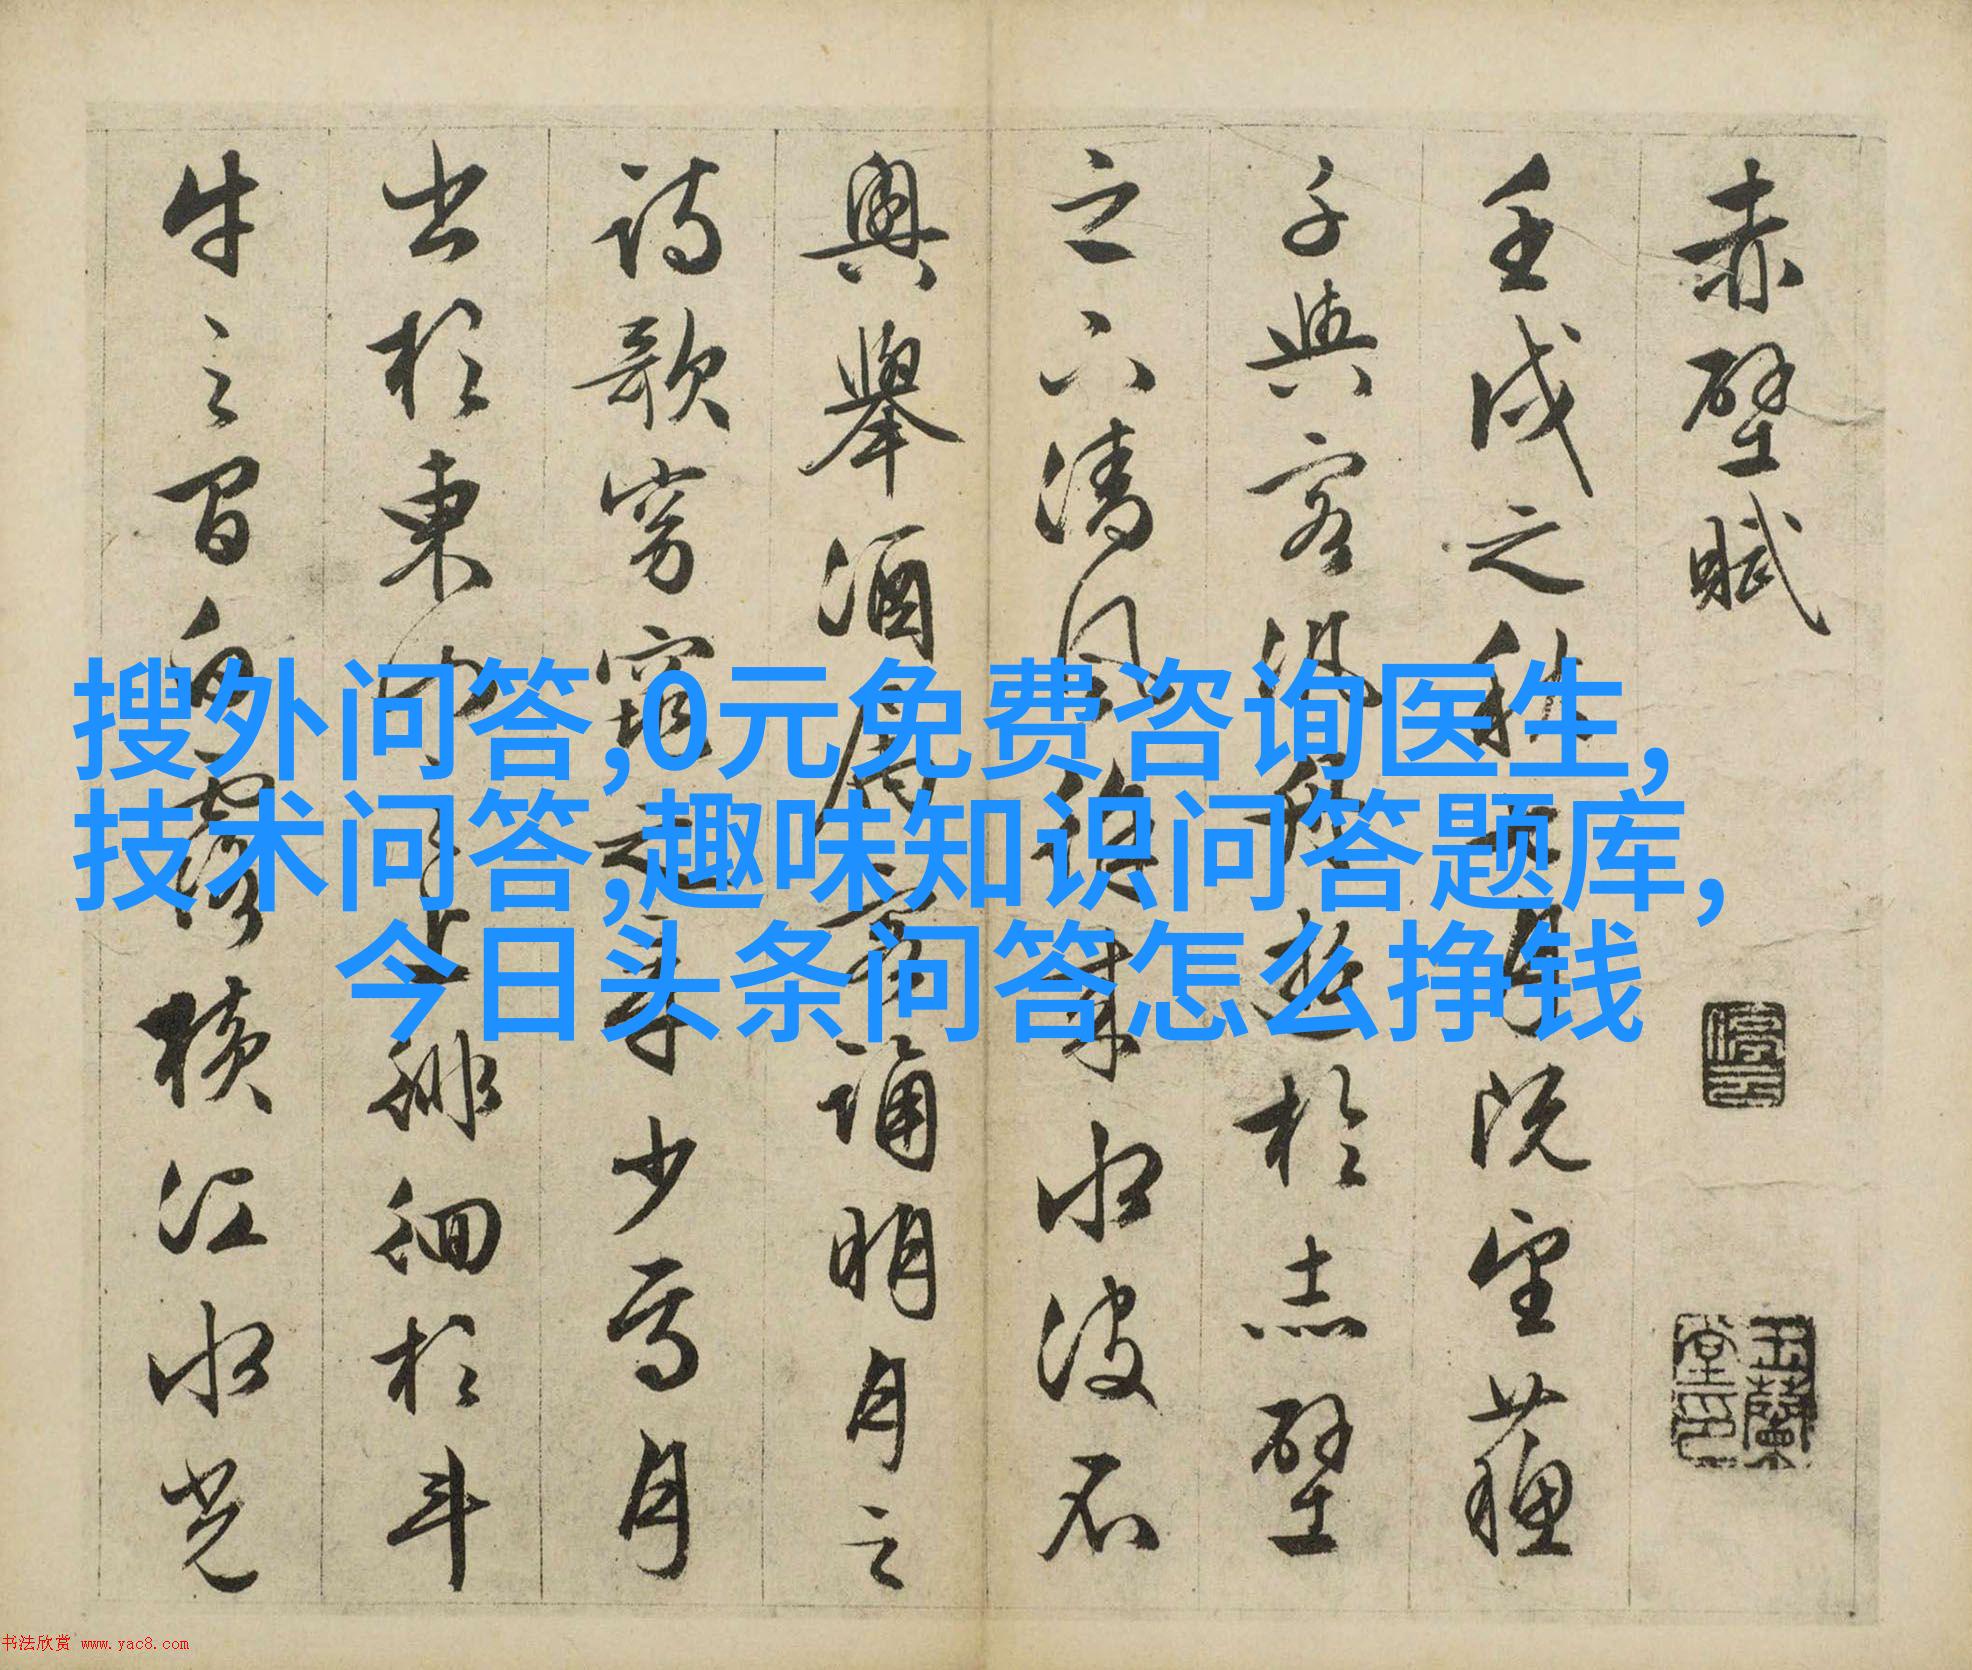 赤壁賦
壬戌之秋七月既望蘓
子與客汎舟遊於赤壁
之下清風徐來水波不
興舉酒屬客誦明月之
詩歌窈窕之章少焉月
出於東山之上徘徊於斗
牛之間白露横江水光
搜外问答,0元免费咨询医生,
技术问答,趣味知识问答题库,
今日头条问答怎么挣钱
玉蘭
堂印
书法欣赏 www.yac8.com